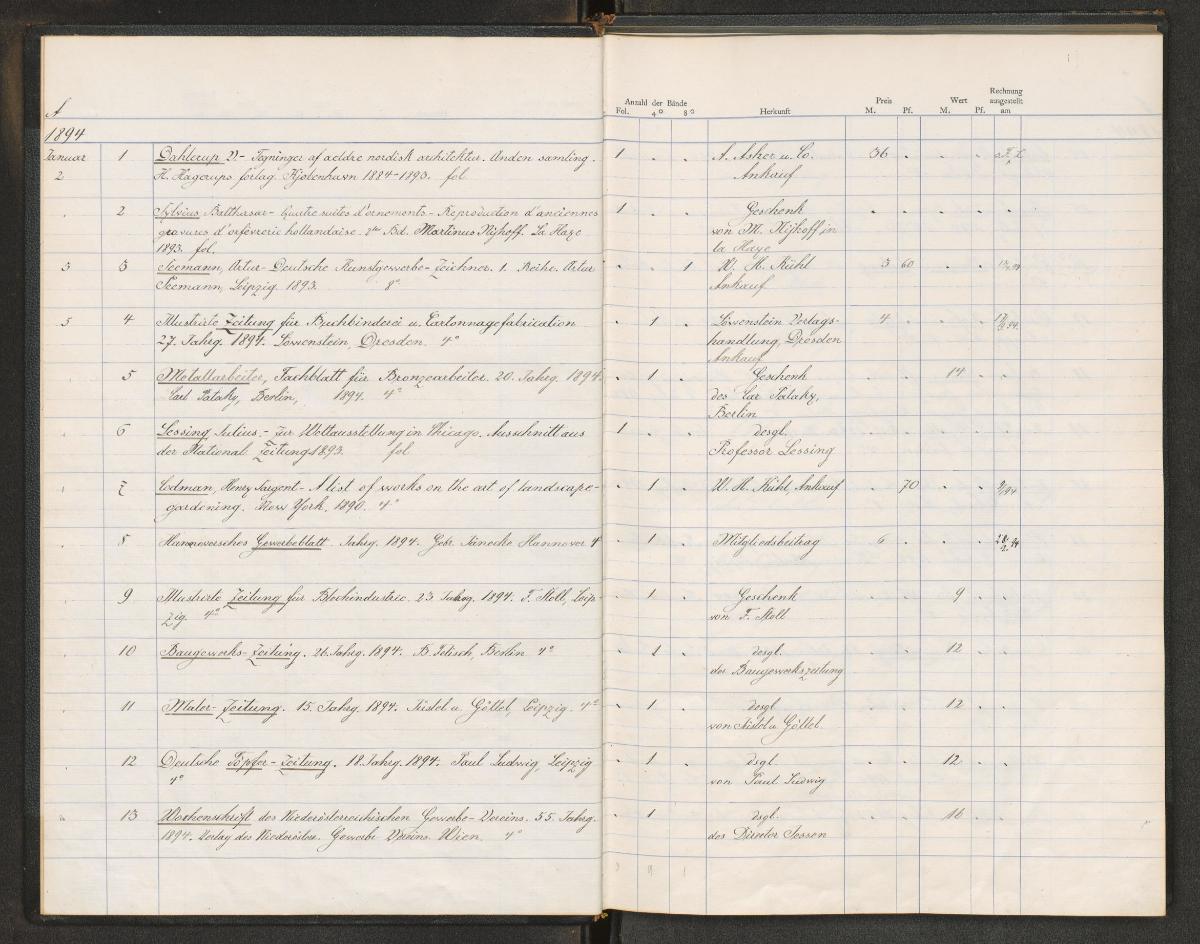 A
1894
Anzahl der Bände
Fol. 4° 8°
Herkunft
Preis
M. Pf.
Wert
M. Pf.
Rechnung
ausgestellt
am
Januar 1 Dahlerup V.- Tegninger af aeldre nordisk arkitektur. Anden samling. 1 . . A. Asher u. Co. 36 . . .
2 H. Hagerups forlag. Kjobenhavn 1884-1893. fol. Ankauf
. 2 Sylvius Balthasar- Quatre suites d'ornements- Reproduction d'anciennes 1 . . Geschenk . . . . .
gravures d'orfèvrerie hollandaise. 2ter Bd. Martinus Nijhoff. La Haye von M. Nijhoff in
1893. fol. la Haye
3 3 Seemann, Artur- Deutsche Kunstgewerbe-Zeichner. 1. Reihe. Artur . . 1 W. H. Kühl 3 60 . .
Seemann, Leipzig. 1893. 8° Ankauf
5 4 Illustrirte Zeitung für Buchbinderei u. Cartonnagefabrication . 1 . Löwenstein Verlags- 4 . . .
27. Jahrg. 1894. Löwenstein, Dresden. 4° handlung, Dresden
Ankauf
. 5 Metallarbeiter, Fachblatt für Bronzearbeiter. 20. Jahrg. 1894. . 1 . Geschenk . . 14 . .
Carl Pataky, Berlin, 1894. 4° des Car Pataky,
Berlin
. 6 Lessing Julius.- Zur Weltausstellung in Chicago. Ausschnitt aus 1 . . desgl. . . . . .
der National Zeitung 1893. fol Professor Lessing
7 Codman, Henry Sargent- A list of works on the art of landscape- . 1 . W. H. Kühl, Ankauf . 70 . .
gardening. New York. 1890. 4°
. 8 Hannoversches Gewerbeblatt. Jahrg. 1894. Gebr. Jänecke Hannover 4 . 1 . Mitgliedsbeitrag 6 . . .
. 9 Illustrirte Zeitung für Blechindustrie. 23 Jahrg. 1894. F. Stoll, Leip- . 1 . Geschenk . . 9 . .
zig. 4° von F. Stoll
. 10 Baugewerks-Zeitung. 26. Jahrg. 1894. B. Felisch, Berlin 4° . 1 . desgl. . . 12 . .
der Baugewerkszeitung
. 11 Maler-Zeitung. 15. Jahrg. 1894. Jüstel u. Göttel, Leipzig. 4° . 1 . desgl . . 12 . .
von Jüstel u. Göttel.
. 12 Deutsche Töpfer-Zeitung. 18. Jahrg. 1894. Paul Ludwig, Leipzig . 1 . dsgl. . . 12 . .
4° von Paul Ludwig
13 Wochenschrift des Niederösterreichischen Gewerbe-Vereins. 55. Jahrg. . 1 . dsgl. . . 16 . .
1894. Verlag des Niederösterr. Gewerbe Vereins. Wien. 4° des Director Jessen
3 9 1